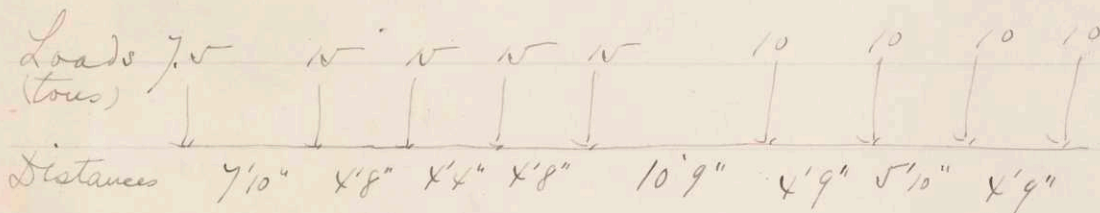 Loads 7.5 15 15 15 15 10 10 10 10
(tons)
Distances 7'10" 4'8" 4'4" 4'8" 10'9" 4'9" 5'10" 4'9"